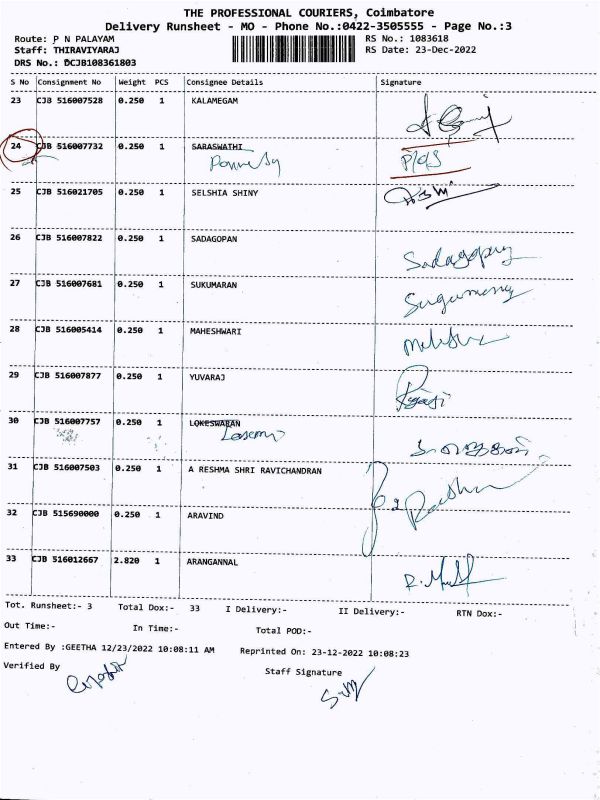 THE PROFESSIONAL COURIERS, Coimbatore
Delivery Runsheet - MO - Phone No.:0422-3505555 - Page No.:3
Route: P N PALAYAM RS No.: 1083618
Staff: THIRAVIYARAJ RS Date: 23-Dec-2022
DRS No.: DCJB108361803
S No Consignment No Weight PCS Consignee Details Signature
23 CJB 516007528 0.250 1 KALAMEGAM
24 CJB 516007732 0.250 1 SARASWATHI
25 CJB 516021705 0.250 1 SELSHIA SHINY
26 CJB 516007822 0.250 1 SADAGOPAN
27 CJB 516007681 0.250 1 SUKUMARAN
28 CJB 516005414 0.250 1 MAHESHWARI
29 CJB 516007877 0.250 1 YUVARAJ
30 CJB 516007757 0.250 1 LOKESWARAN
31 CJB 516007503 0.250 1 A RESHMA SHRI RAVICHANDRAN
32 CJB 515690000 0.250 1 ARAVIND
33 CJB 516012667 2.820 1 ARANGANNAL
Tot. Runsheet:- 3 Total Dox:- 33 I Delivery:- II Delivery:- RTN Dox:-
Out Time:- In Time:- Total POD:-
Entered By :GEETHA 12/23/2022 10:08:11 AM Reprinted On: 23-12-2022 10:08:23
Verified By Staff Signature